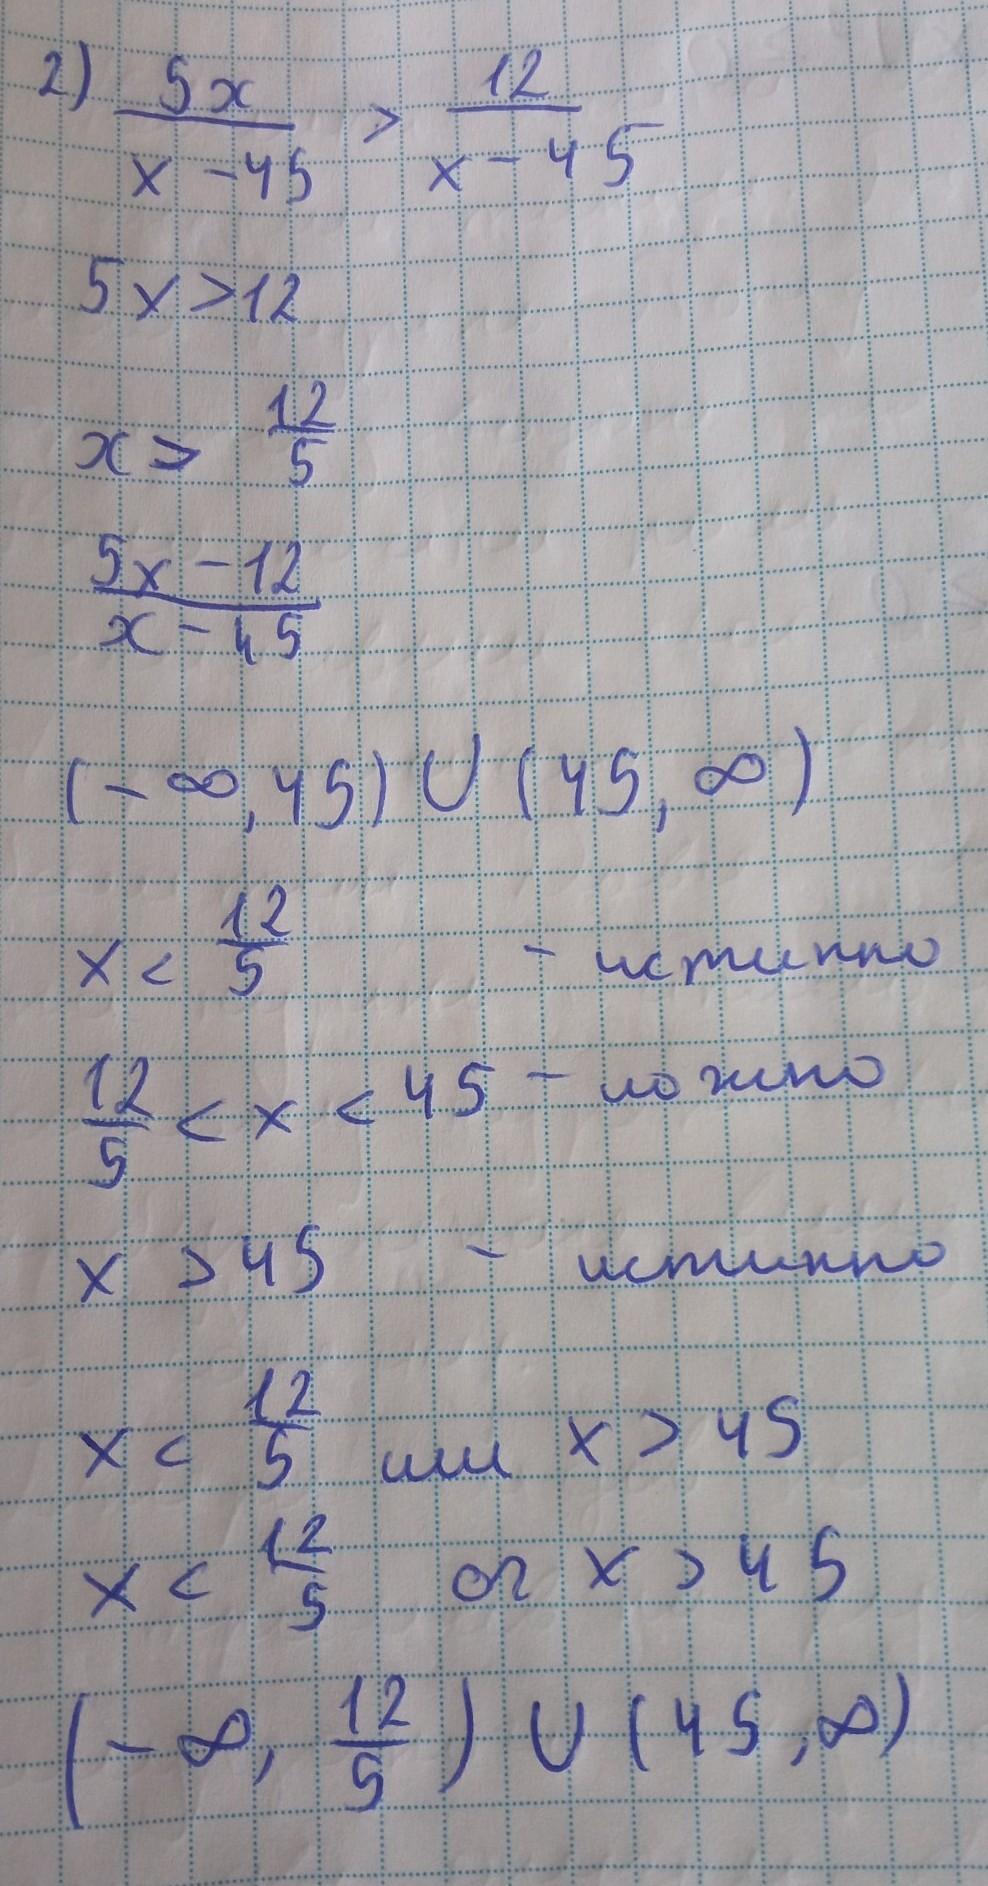 2) 5x/(x-45) > 12/(x-45)
5x>12
x> 12/5
(5x-12)/(x-45)
(-∞,45) ∪ (45, ∞)
x < 12/5 - истинно
12/5 < x < 45 - ложно
x > 45 - истинно
x < 12/5 или x > 45
x < 12/5 or x > 45
(-∞, 12/5) ∪ (45, ∞)